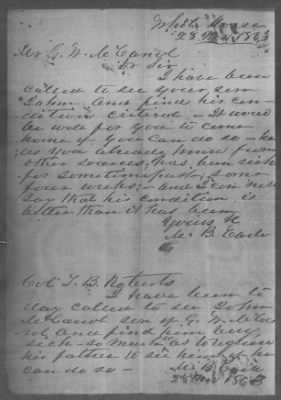 White House
28 1863
Mr G. W. McCanol
Dr Sir
I have been
called to see your son
John And find his con-
dition critical – It would
be well for you to come
home if you can do so – he
as you already know from
other sources, has been sick
for sometime past, some
four weeks, – and I can not
say that his condition is
better than it has been
Yours &c
B.
Col T. B. Roberts
I have been to
day called to see John
son of G. W.
And find him very
sick – so much as to require
his father to see him if he
can do so –
B.
28 1863